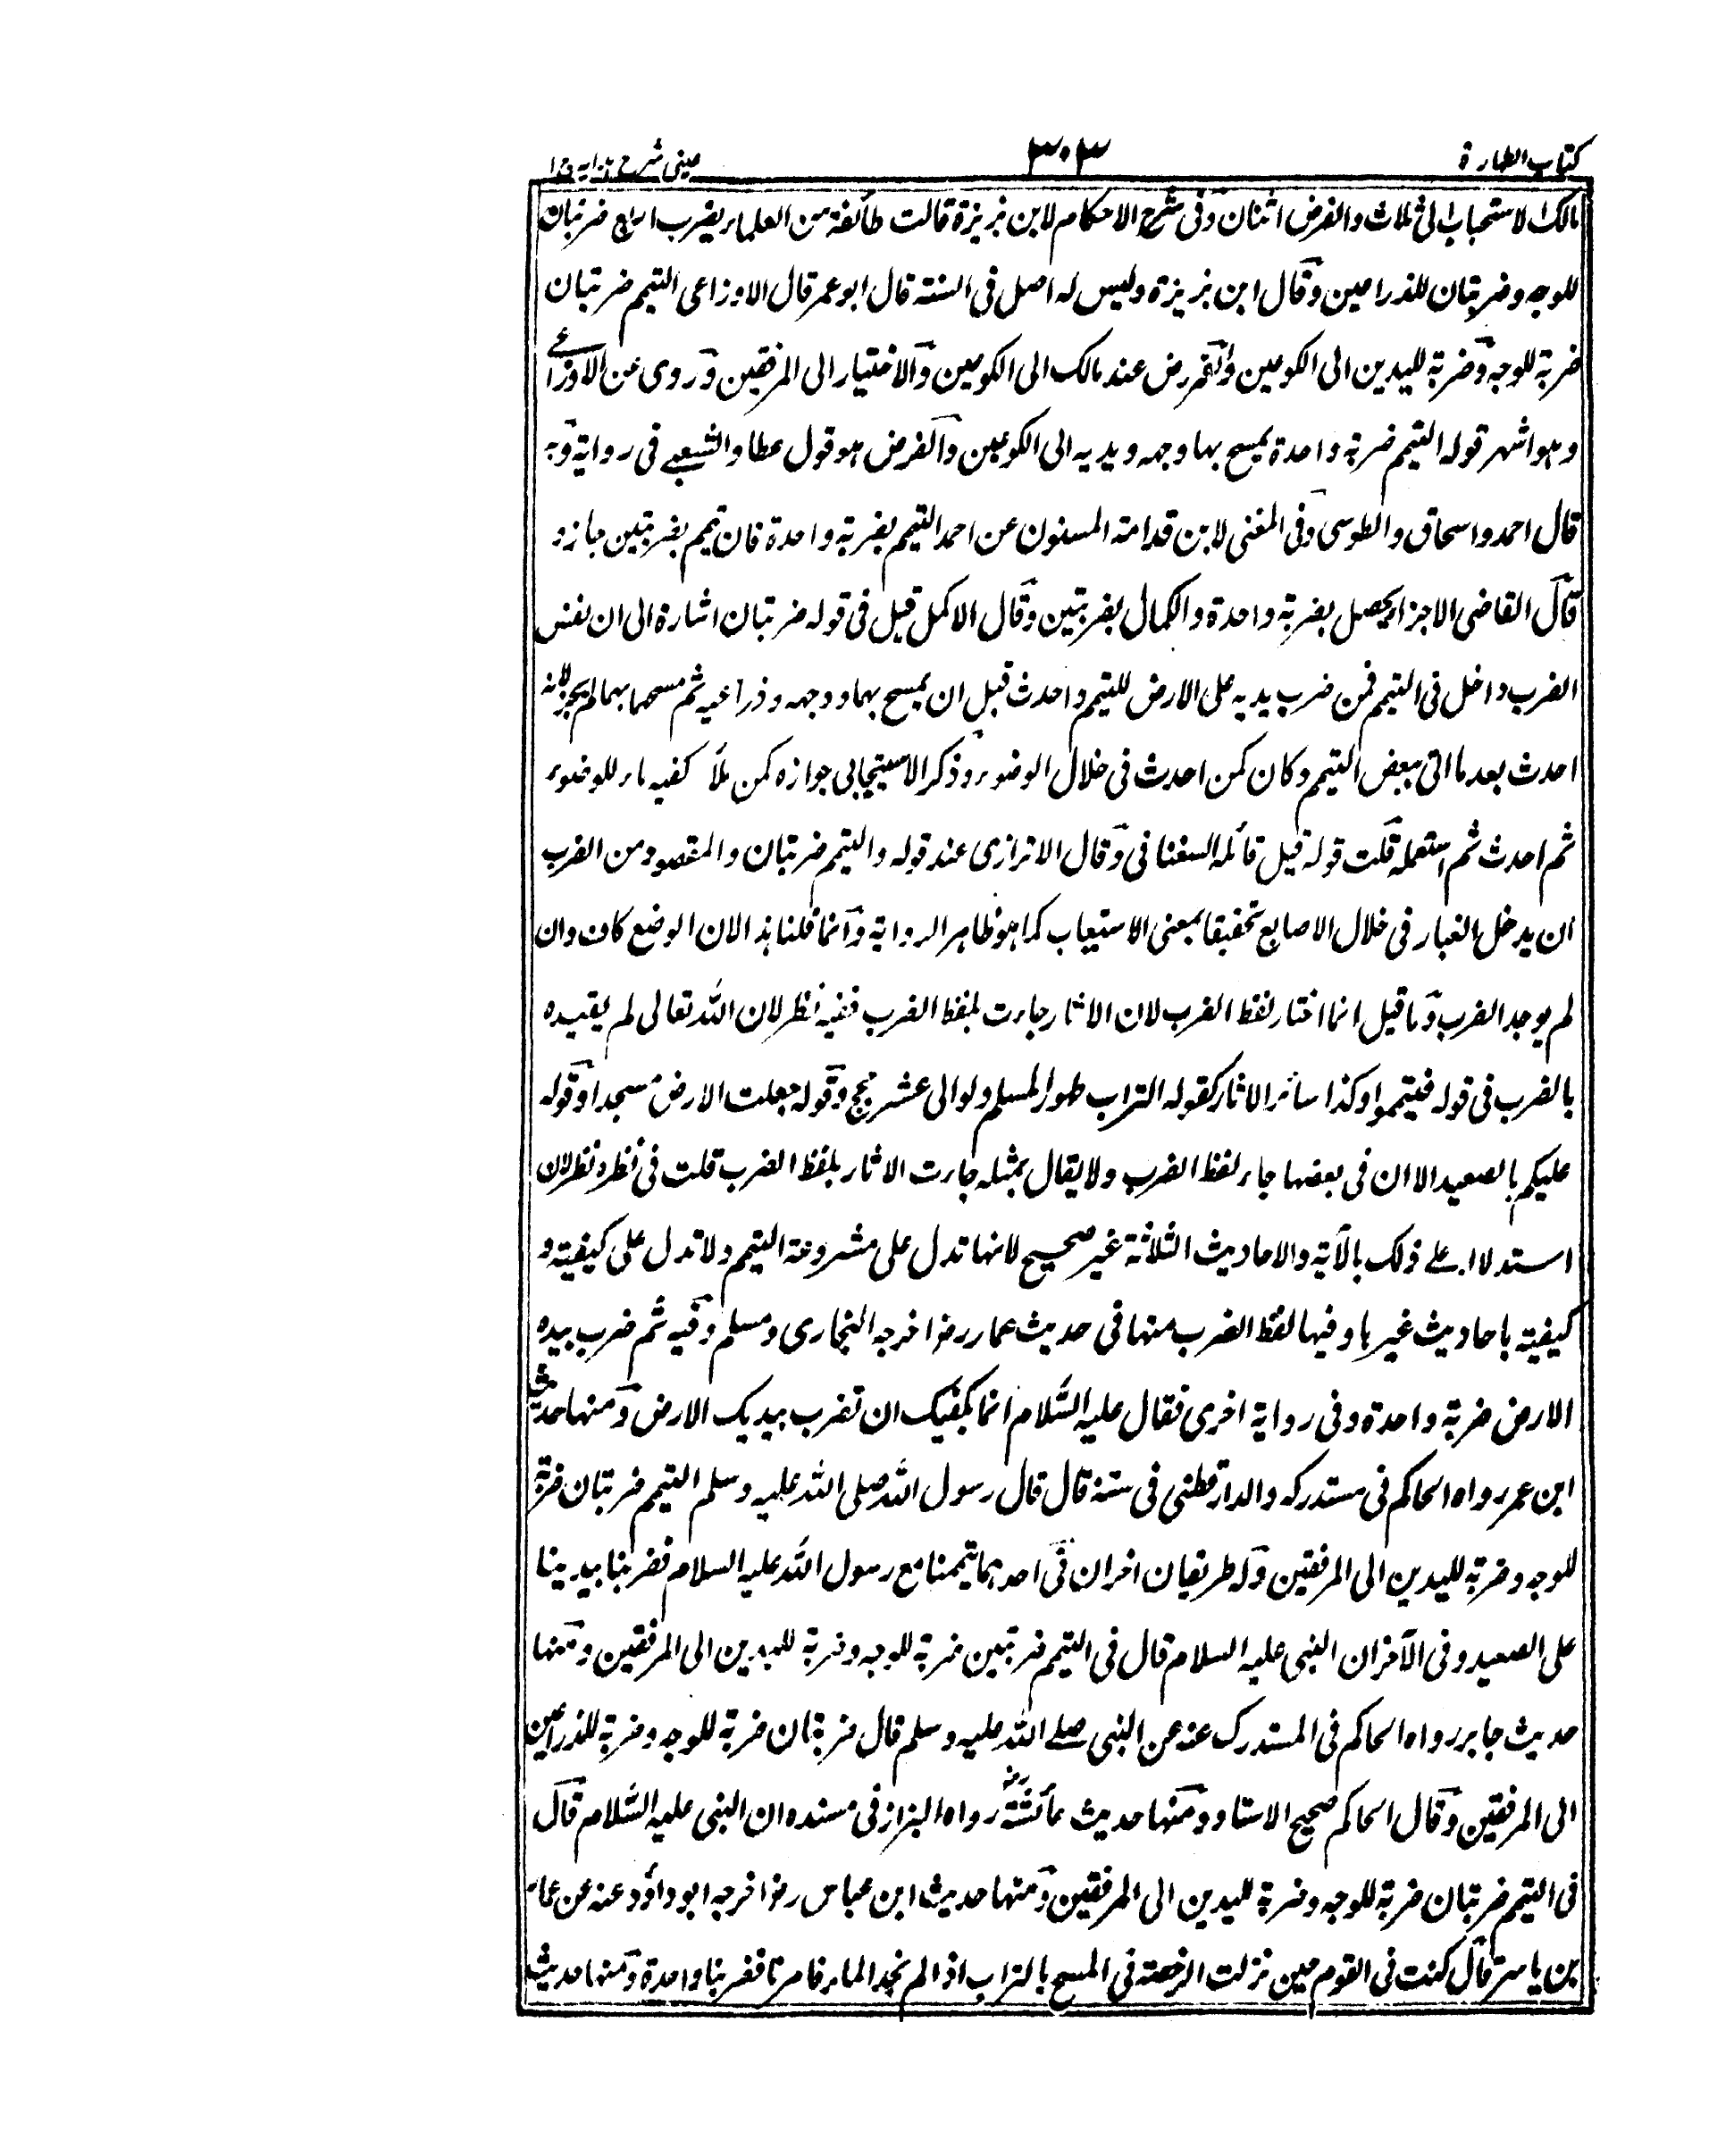 كتاب الطهارة
۳۰۳
عينى شرح هدايه ج ١
مالك الاستحباب الى ثلاث والفرض اثنتان وفى شرح الاحكام لابن بزيزة قالت طائفة من العلماء يضرب اربع ضربتان
للوجه وضربتان للذراعين وقال ابن بزيزة وليس له اصل فى السنة قال ابو عمر قال الاوزاعى التيمم ضربتان
ضربة للوجه وضربة لليدين الى الكوعين والفرض عند مالك الى الكوعين والاختيار الى المرفقين وروى عن الاوزاعے
وهو اشهر قوله التيمم ضربة واحدة يمسح بها وجهه ويديه الى الكوعين والفرض هو قول عطا والشعبے فى رواية وبه
قال احمد واسحاق والطوسى وفى المغنى لابن قدامة المسنون عن احمد التيمم بضربة واحدة فان تيمم بضربتين جاز و
قال القاضى الاجزاء يحصل بضربة واحدة والكمال بضربتين وقال الاكمل قيل فى قوله ضربتان اشارة الى ان نفس
الضرب داخل فى التيمم فمن ضرب يديه على الارض للتيمم واحدث قبل ان يمسح بهما ووجهه وذراعيه ثم مسحها بهما لم يجز لانه
احدث بعد ما اتى ببعض التيمم وكان كمن احدث فى خلال الوضوء وذكر الاسبيجابى جوازه كمن ملأ كفيه ماء للوضوء
ثم احدث ثم استعمله قلت قوله قيل قائله السغناقى وقال الاترازى عند قوله والتيمم ضربتان والمقصود من الضرب
ان يدخل الغبار فى خلال الاصابع تحقيقا بمعنى الاستيعاب كما هو ظاهر الرواية وانما قلنا هذا لان الوضع كاف وان
لم يوجد الضرب وما قيل انما اختار لفظ الضرب لان الاثار جاءت بلفظ الضرب ففيه نظر لان الله تعالى لم يقيده
بالضرب فى قوله فتيمموا وكذا سائر الاثار كقوله التراب طهور المسلم ولو الى عشر حجج وقوله جعلت الارض مسجدا وقوله
عليكم بالصعيد الا ان فى بعضها جاء لفظ الضرب ولا يقال بمثله جاءت الاثار بلفظ الضرب قلت فى نظره نظر لان
استدلاله علے ذلك بالآية والاحاديث الثلاثة غير صحيح لانها تدل على مشروعة التيمم ولا تدل على كيفيته و
كيفيته باحاديث غيرها وفيها لفظ الضرب منها فى حديث عمار رض اخرجه البخارى ومسلم وفيه ثم ضرب بيده
الارض ضربة واحدة وفى رواية اخرى فقال عليه السلام انما يكفيك ان تضرب بيديك الارض ومنها حديث
ابن عمر رواه الحاكم فى مستدركه والدارقطنى فى سننه قال قال رسول الله صلى الله عليه وسلم التيمم ضربتان ضربة
للوجه وضربة لليدين الى المرفقين وله طريقان اخران فى احدهما تيممنا مع رسول الله عليه السلام فضربنا بيدينا
على الصعيد وفى الآخر ان النبى عليه السلام قال فى التيمم ضربتين ضربة للوجه وضربة لليدين الى المرفقين ومنها
حديث جابر رواه الحاكم فى المستدرك عنه عن النبى صلے الله عليه وسلم قال ضربتان ضربة للوجه وضربة للذراعين
الى المرفقين وقال الحاكم صحيح الاسناد ومنها حديث عائشة رض رواه البزاز فى مسنده ان النبى عليه السلام قال
فى التيمم ضربتان ضربة للوجه وضربة لليدين الى المرفقين ومنها حديث ابن عباس رض اخرجه ابو داؤد عنه عن عمار
بن ياسر قال كنت فى القوم حين نزلت الرخصة فى المسح بالتراب اذا لم نجد الماء فامرنا فضربنا واحدة ومنها حديث